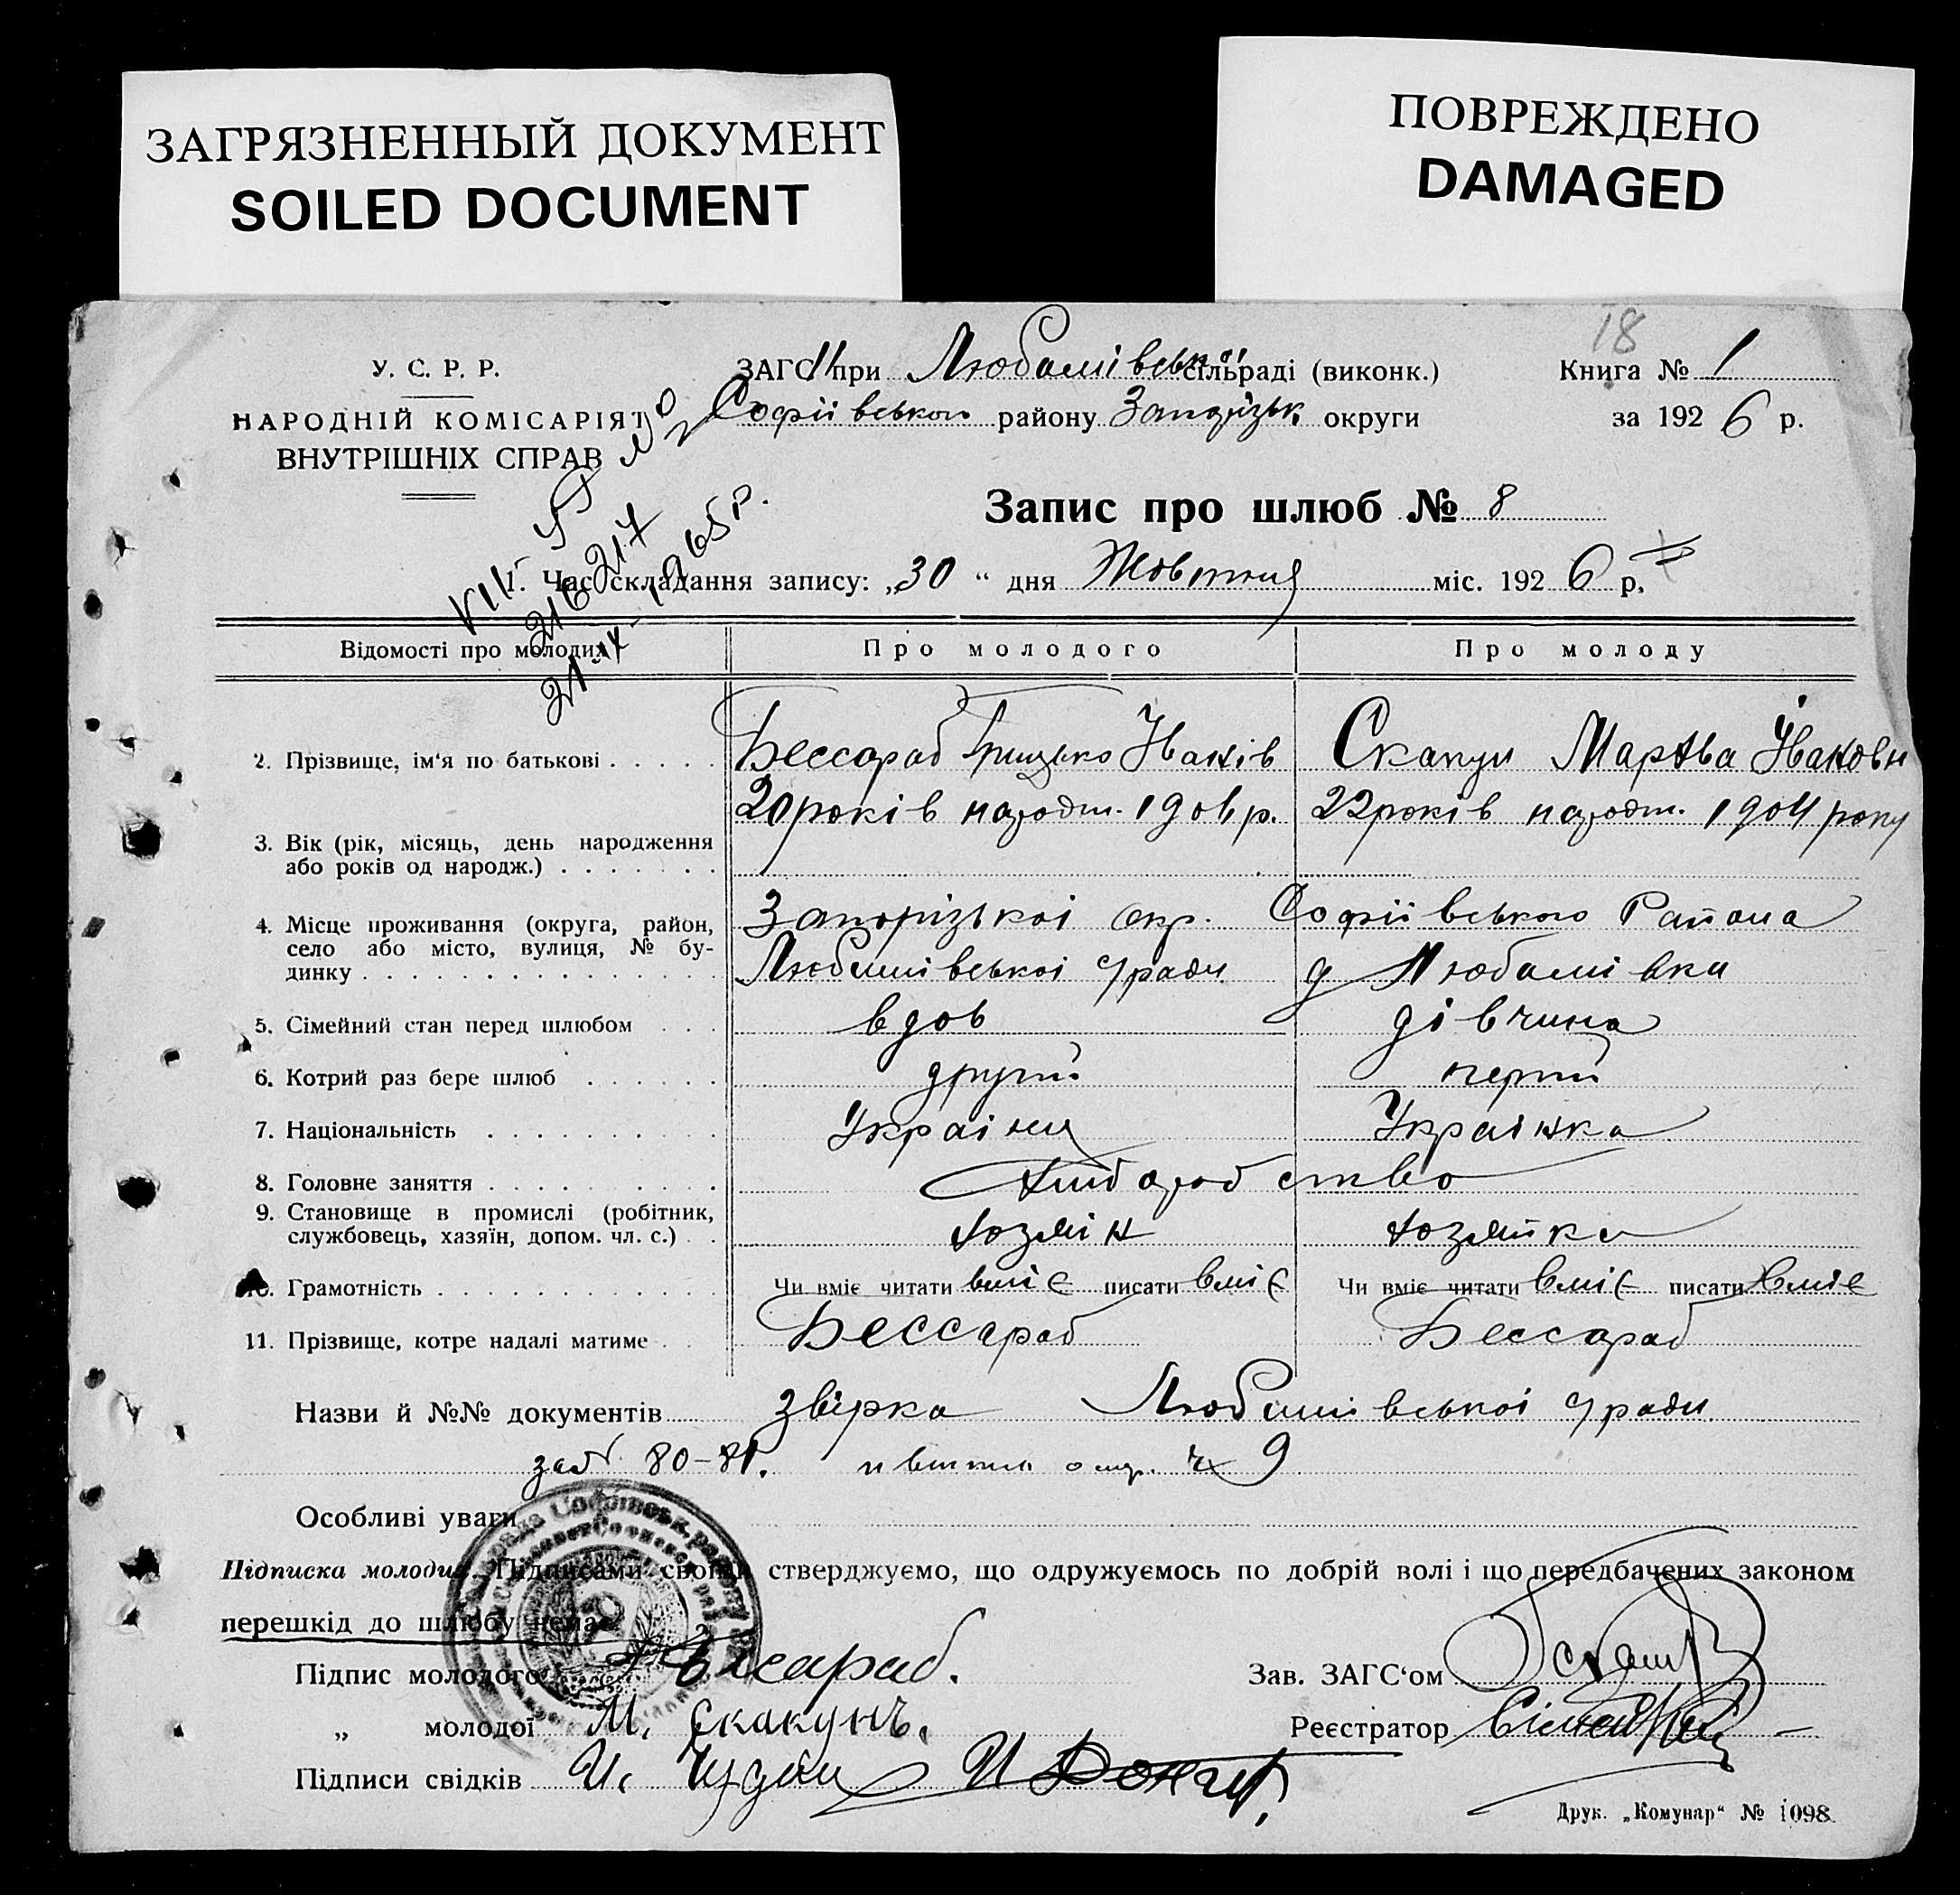 ЗАГРЯЗНЕННЫЙ ДОКУМЕНТ
SOILED DOCUMENT
ПОВРЕЖДЕНО
DAMAGED
18
У. С. Р. Р.
НАРОДНІЙ КОМІСАРІЯТ
ВНУТРІШНІХ СПРАВ
ЗАГС при Любимівськ сільраді (виконк.)
Софіївського району Запорізьк округи
Книга № 1
за 1926 р.
Запис про шлюб № 8
1. Час складання запису: „30“ дня Жовтня міс. 1926 р.
216 217
1965р.
Відомості про молодих
Про молодого
Про молоду
2. Прізвище, ім'я по батькові
Бессараб Грицько Іванів
Скакун Марѳва Івановн
20 років народж. 1906 р.
22 років народж. 1904 року
3. Вік (рік, місяць, день народження
або років од народж.)
4. Місце проживання (округа, район,
село або місто, вулиця, № бу-
динку
Запорізькоі окр. Софіівського Района
Любимівськоі с/ради д Любимівки
5. Сімейний стан перед шлюбом вдов дівчина
6. Котрий раз бере шлюб другий перший
7. Національність Українец Українка
8. Головне заняття Хліборобство
9. Становище в промислі (робітник,
службовець, хазяїн, допом. чл. с.) хозяін хозяйка
10. Грамотність Чи вміє читати вміє писати вміє Чи вміє читати вміє писати вміє
11. Прізвище, котре надалі матиме Бессараб Бессараб
Назви й №№ документів звірка Любимівськоі с/ради
за № 80-81. 9
Особливі уваги
Підписка молодих. Підписами своїми стверджуємо, що одружуємось по добрій волі і що передбачених законом
перешкід до шлюбу немає
Підпис молодого Бесараб.
„ молодої М. Скакунъ.
Підписи свідків И.
Зав. ЗАГС'ом
Реєстратор
Друк. „Комунар“ № 1098